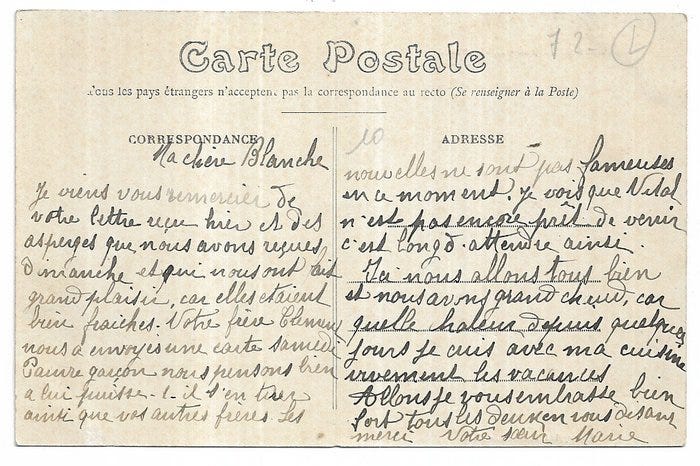 72- L
Carte Postale
Tous les pays étrangers n'acceptent pas la correspondance au recto (Se renseigner à la Poste)
CORRESPONDANCE
Ma chère Blanche
Je viens vous remercier de
votre lettre reçu hier et des
asperges que nous avons reçues
Dimanche et qui nous ont fait
grand plaisir, car elles etaient
bien fraiches. Votre frère Clement
nous a envoyés une carte samedi
Pauvre garçon nous pensons bien
a lui puisse-t-il s'en tirer
ainsi que vos autres frères. Les
10
ADRESSE
nouvelles ne sont pas fameuses
en ce moment. Je vois que Vital
n'est pas encore prêt de venir
c'est long d'attendre ainsi.
Ici nous allons tous bien
et nous avons grand chaud, car
quelle chaleur depuis quelques
jours je cuis avec ma cuisine
vivement les vacances
Allons je vous embrasse bien
fort tous les deux en vous disant
merci Votre sœur Marie